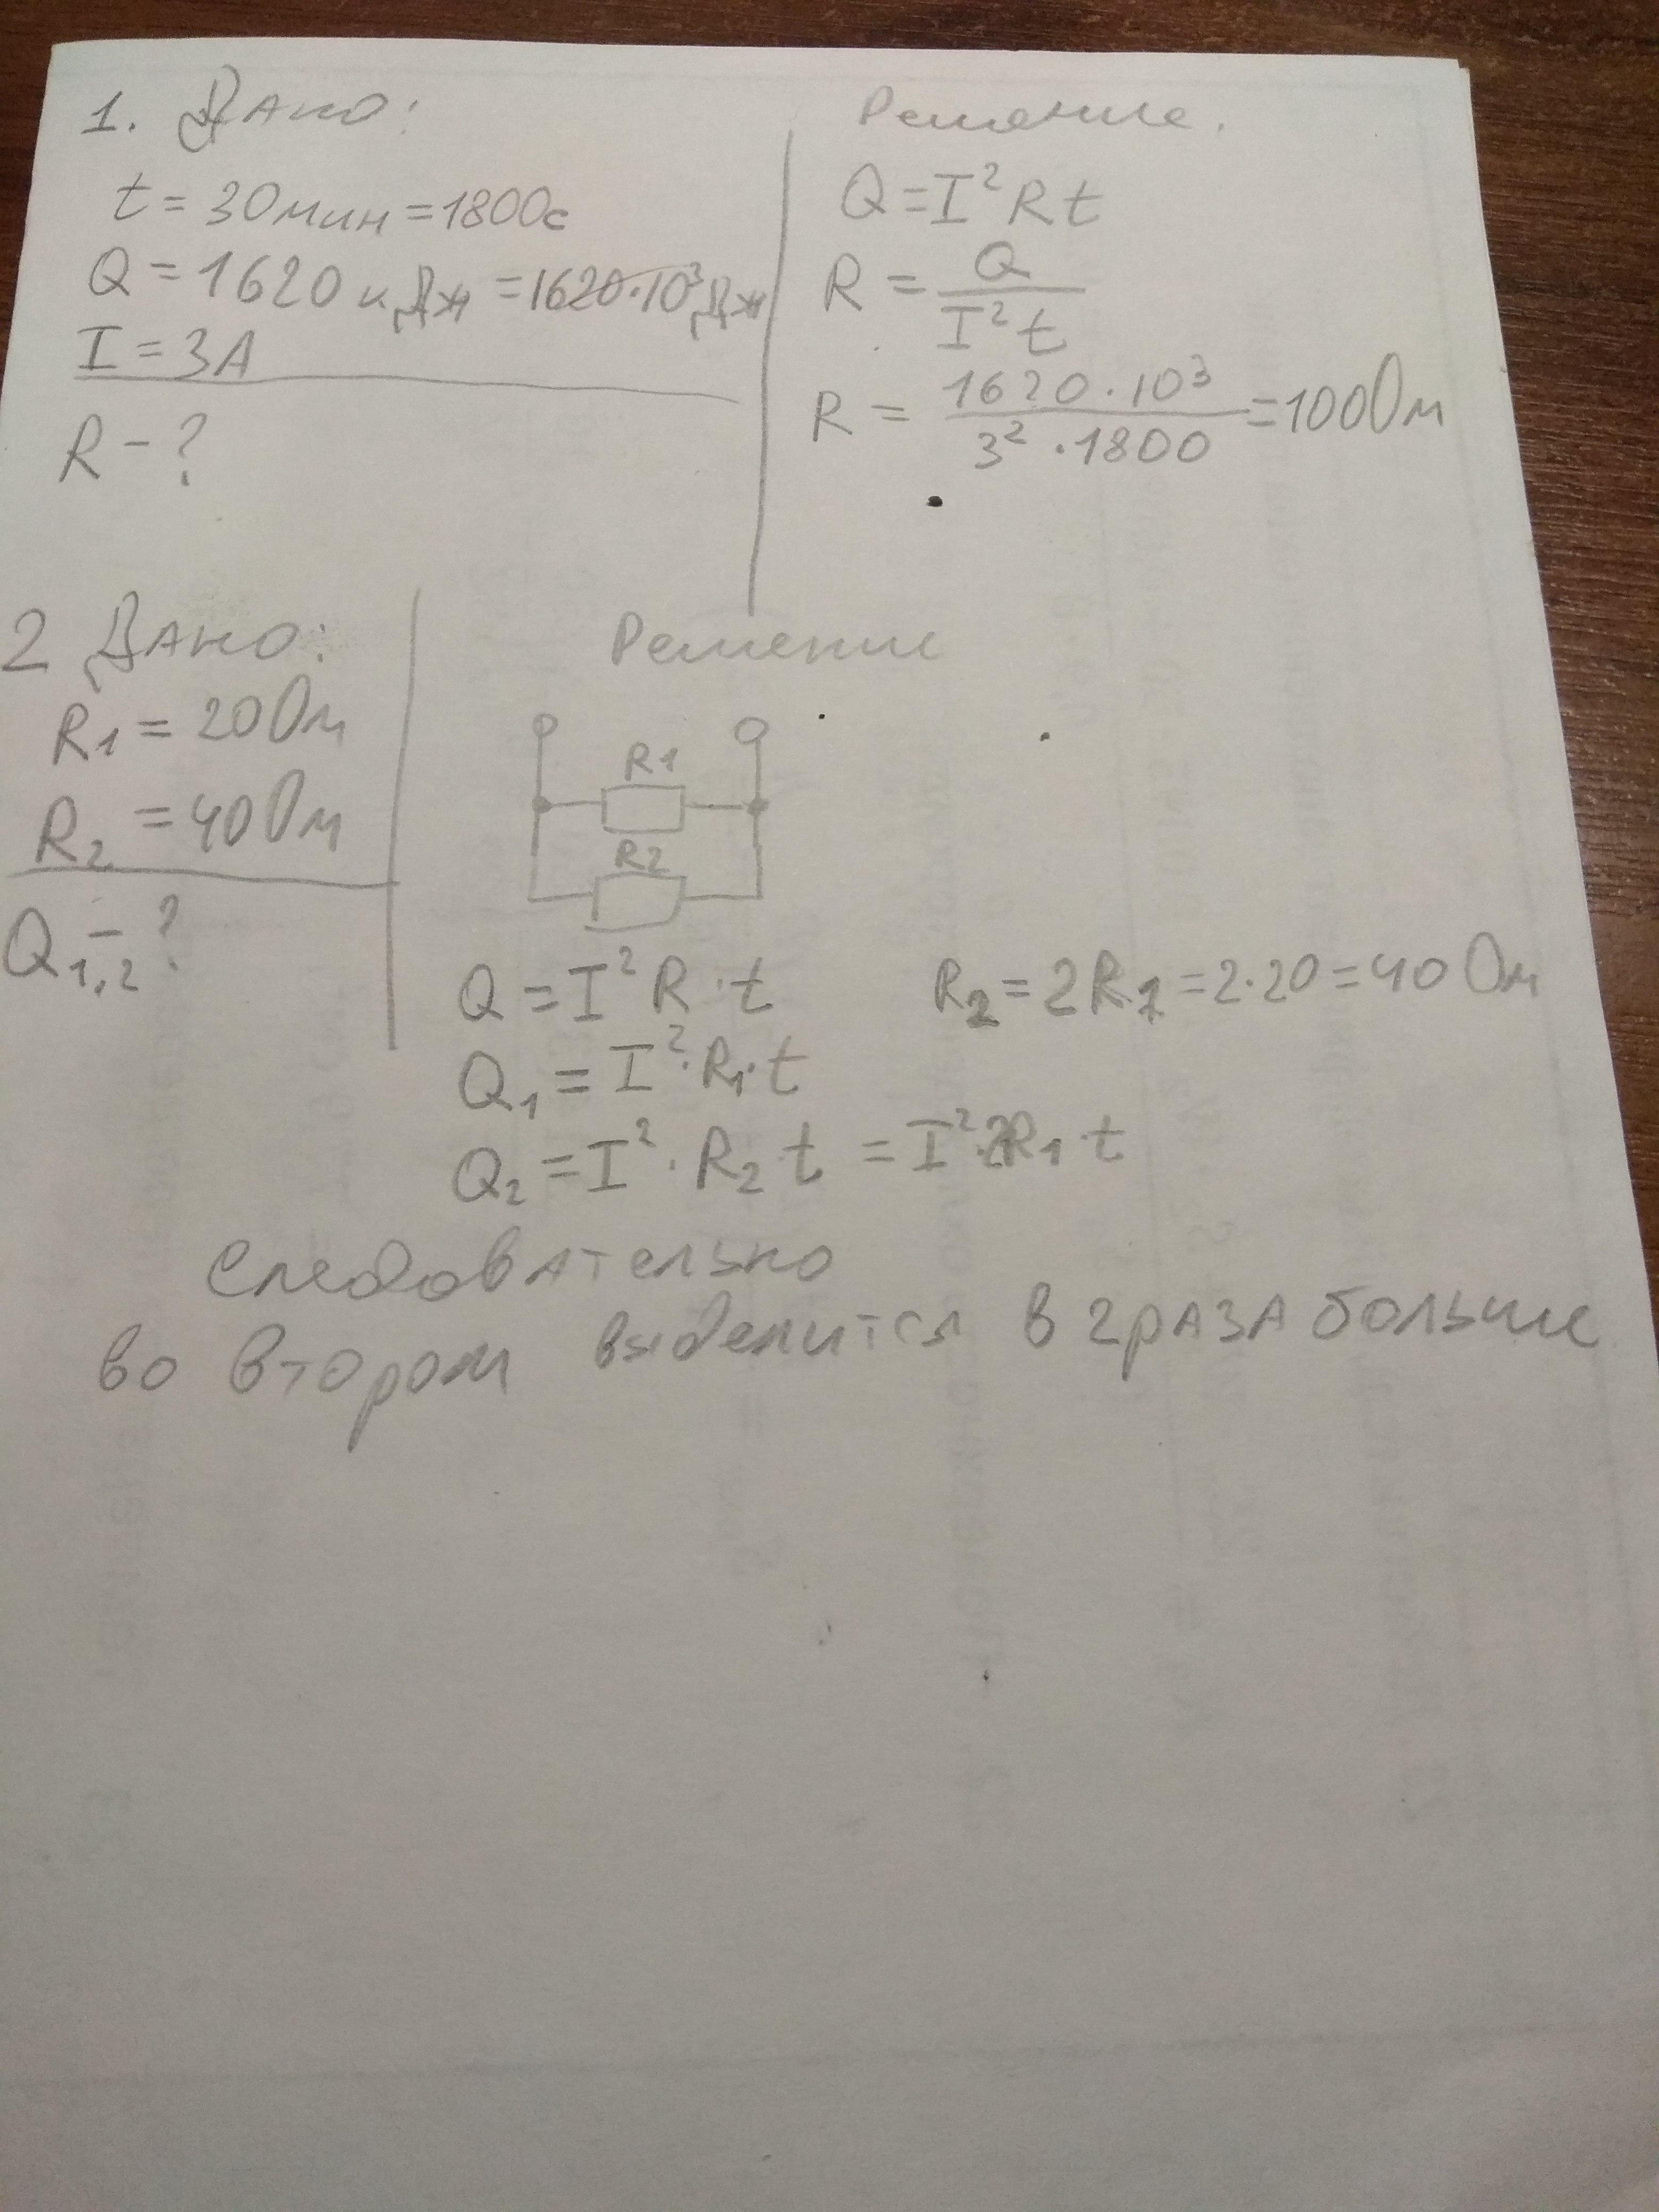 1. Дано:
t = 30 мин = 1800с
Q = 1620 кДж = 1620·10³ Дж
I = 3А
R - ?
Решение.
Q = I² R t
R = Q / I² t
R = 1620·10³ / 3²·1800 = 100 Ом
2 Дано:
R1 = 20 Ом
R2 = 40 Ом
Q1,2 - ?
Решение
R1
R2
Q = I² R · t
R2 = 2R1 = 2·20 = 40 Ом
Q1 = I² · R1 · t
Q2 = I² · R2 t = I² · 2R1 t
Следовательно
во втором выделится в 2 раза больше